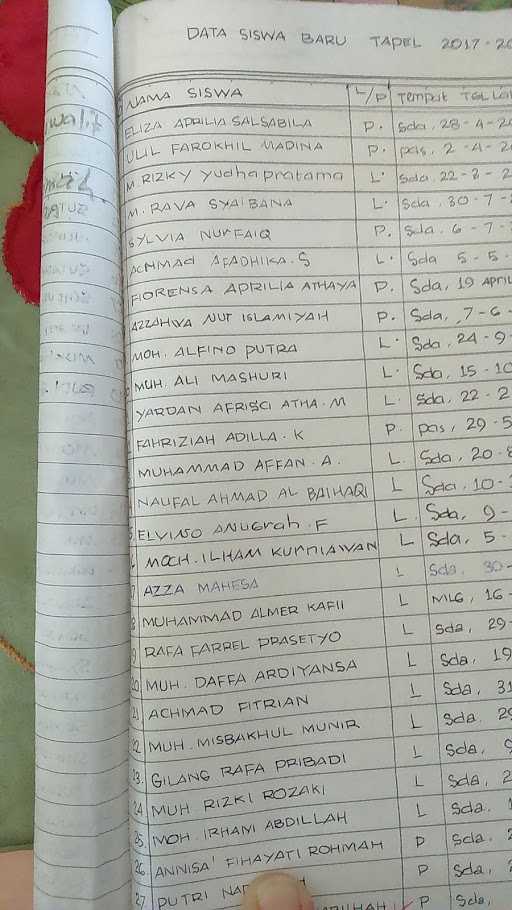 DATA SISWA BARU TAPEL 2017-20
NAMA SISWA L/P Tempat TGL La
ELIZA APRILIA SALSABILA P. Sda, 28-4-20
ULIL FAROKHIL MADINA P. pas, 2-4-2
M. RIZKY Yudha pratama L. Sda, 22-3-2
M. RAVA SYAIBANA L. Sda, 30-7-
SYLVIA NURFAIQ P. Sda, 6-7-
ACHMAD AFADHIKA.S L. Sda 5-5-
FIORENSA APRILIA ATHAYA P. Sda, 19 APRIL
AZZAHWA NUR ISLAMIYAH P. Sda, 7-6-
MOH. ALFINO PUTRA L. Sda, 24-9-
MUH. ALI MASHURI L. Sda, 15-10
YARDAN AFRISCI ATHA.M L. Sda, 22-2
FAHRIZIAH ADILLA.K P. pas, 29-5
MUHAMMAD AFFAN.A. L. Sda, 20-8
NAUFAL AHMAD AL BAIHAQI L Sda, 10-
ELVINO ANUGrah.F L. Sda, 9-
MOCH. ILHAM KURNIAWAN L Sda, 5-
AZZA MAHESA L Sda, 30-
MUHAMMAD ALMER KAFII L MLG, 16-
RAFA FARREL PRASETYO L Sda, 29-
20 MUH. DAFFA ARDIYANSA L Sda, 19
21 ACHMAD FITRIAN L Sda, 31
22. MUH. MISBAKHUL MUNIR L Sda. 29
23. GILANG RAFA PRIBADI L Sda,
24. MUH RIZKI ROZAKI L Sda, 2
25. MOH. IRHAM ABDILLAH L Sda. 1
26. ANNISA' FIHAYATI ROHMAH P Sda, 2
27. PUTRI P Sda,
P Sda,